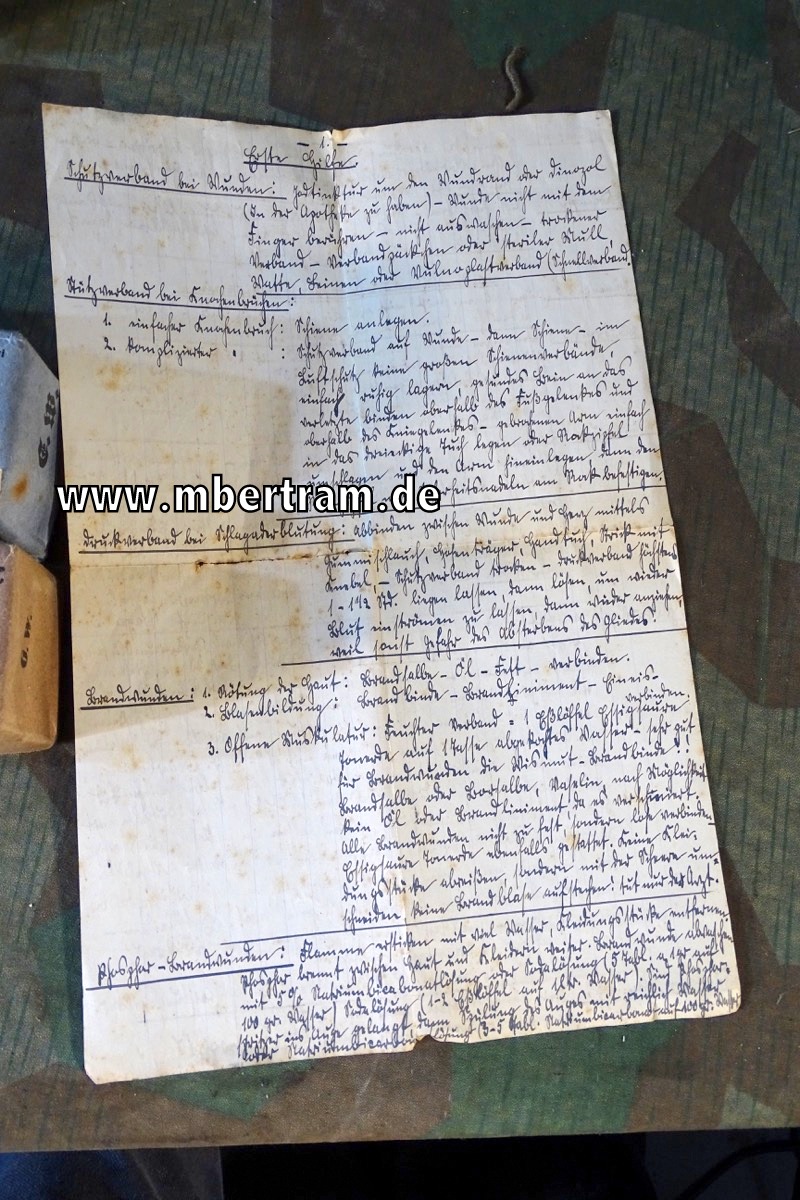 - 1. -
Erste Hilfe.
Schutzverband bei Wunden: Jodtinktur um den Wundrand oder Dinogol
(In der Apotheke zu haben) – Wunde nicht mit dem
Finger berühren – nicht auswaschen – trockener
Verband – Verbandpäckchen oder steriler Mull,
Watte, Leinen oder Vulnoplastverband (Schnellverband.
Stützverband bei Knochenbrüchen:
1. einfacher Knochenbruch: Schiene anlegen.
2. komplizierter " : Schutzverband auf Wunde – dann Schiene – im
Luftschutz keine großen Schienenverbände,
einfach ruhig lagern, gesundes Bein an das
verletzte binden oberhalb des Fußgelenkes und
oberhalb des Kniegelenkes – gebrochenen Arm einfach
in das dreieckige Tuch legen oder Rockzipfel
umschlagen und den Arm hineinlegen, dann den
am Rock befestigen.
www.mbertram.de
Druckverband bei Schlagaderblutung: Abbinden zwischen Wunde und Herz mittels
Gummischlauch, Hosenträger, Handtuch, Strick mit
Knebel, – Schutzverband trocken – Druckverband höchstens
1 – 1½ Std. liegen lassen, dann lösen, um wieder
Blut einströmen zu lassen, dann wieder anziehen,
weil sonst Gefahr des Absterbens des Gliedes.
Brandwunden: 1. Rötung der Haut: Brandsalbe – Öl – Fett – verbinden.
2. Blasenbildung: Brandbinde – Brandliniment – Eineis-
verbinden.
3. Offene Muskulatur: Feuchter Verband = 1 Eßlöffel Essigsaure
Tonerde auf 1 Tasse abgekochtes Wasser – sehr gut
für Brandwunden die Wismut-Brandbinde
Brandsalbe oder Borsalbe, Vaselin, nach Möglichkeit
kein Öl oder Brandliniment, da es verschmiert.
Alle Brandwunden nicht zu fest, sondern lose verbinden
Essigsaure Tonerde ebenfalls gestattet. Keine Klei-
dungsstücke abreißen, sondern mit der Scheere um-
schneiden, keine Brandblase aufstechen! tut nur der Arzt.
Phosphor-Brandwunden: Flamme ersticken mit viel Wasser, Kleidungsstücke entfernen
Phosphor brennt zwischen Haut und Kleidern weiter. Brandwunde abwaschen
mit 5% Natriumbicarbonatlösung oder Sodalösung (5 Tabl. auf
100 gr. Wasser) Sodalösung (1-2 Eßlöffel auf 1 ltr. Wasser) Sind Phosphor-
spritzer ins Auge gelangt, dann Spülung des Auges mit reichlich Wasser
oder Natriumbicarbonatlösung (3-5 Tabl. Natriumbicarbonat auf 100 gr. Wasser